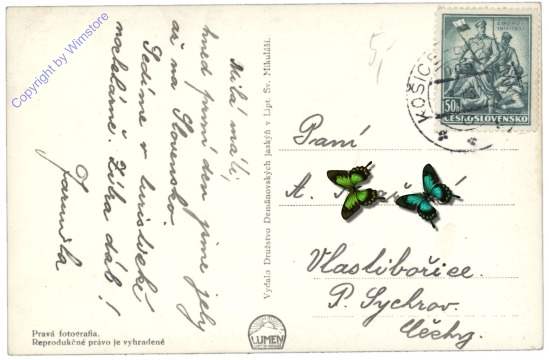 Copyright by Wimstore
Milá máti,
hned první den jsme jely
až na Slovensko
Sedíme v turistické
noclehárně. Zítra dál!
Jarmila
Pravá fotografia.
Reprodukčné právo je vyhradené
Vydalo Družstvo Demänovských jaskýň v Lipt. Sv. Mikuláši.
LUMEN
5,-
ZBOROV
1917-1937
50h
ČESKOSLOVENSKO
KOŠICE
Paní
A.
Vlastibořice.
P. Sychrov.
Čechy.